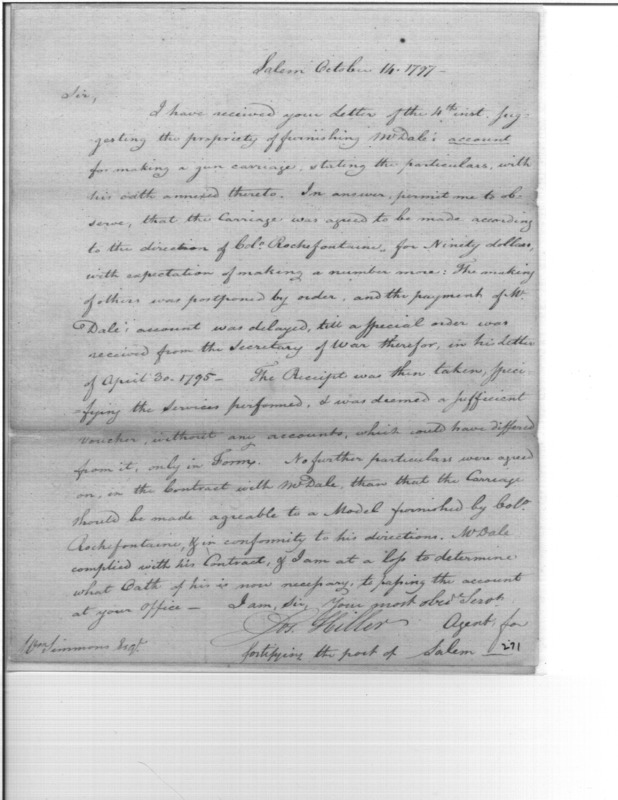 Salem October 14. 1797 -
Sir,
I have received your Letter of the 4th inst. Sug-
-gesting the propriety of furnishing Mr Dale's account
for making a gun carriage, stating the particulars, with
his oath annexed thereto. In answer, permit me to ob-
serve, that the Carriage was agreed to be made according
to the direction of Colo. Rochefontaine, for Ninety dollars,
with expectation of making a number more: The making
of others was postponed by order, and the payment of Mr
Dale's account was delayed, till a Special order was
received from the Secretary of War therefor, in his Letter
of April 30. 1795 - The Receipt was then taken, Speci-
-fying the Services performed, & was deemed a sufficient
voucher, without any accounts, which could have differed
from it, only in Form. No further particulars were agreed
on, in the Contract with Mr Dale, than that the Carriage
should be made agreable to a Model furnished by Colo.
Rochefontaine, & in conformity to his directions. Mr Dale
complied with his Contract, & I am at a loss to determine
what Oath of his is now necessary, to passing the account
at your Office - I am, Sir, Your most obedt. Servt.
Jos. Hiller Agent for
fortifying the port of Salem
Wm Simmons Esqr.
271